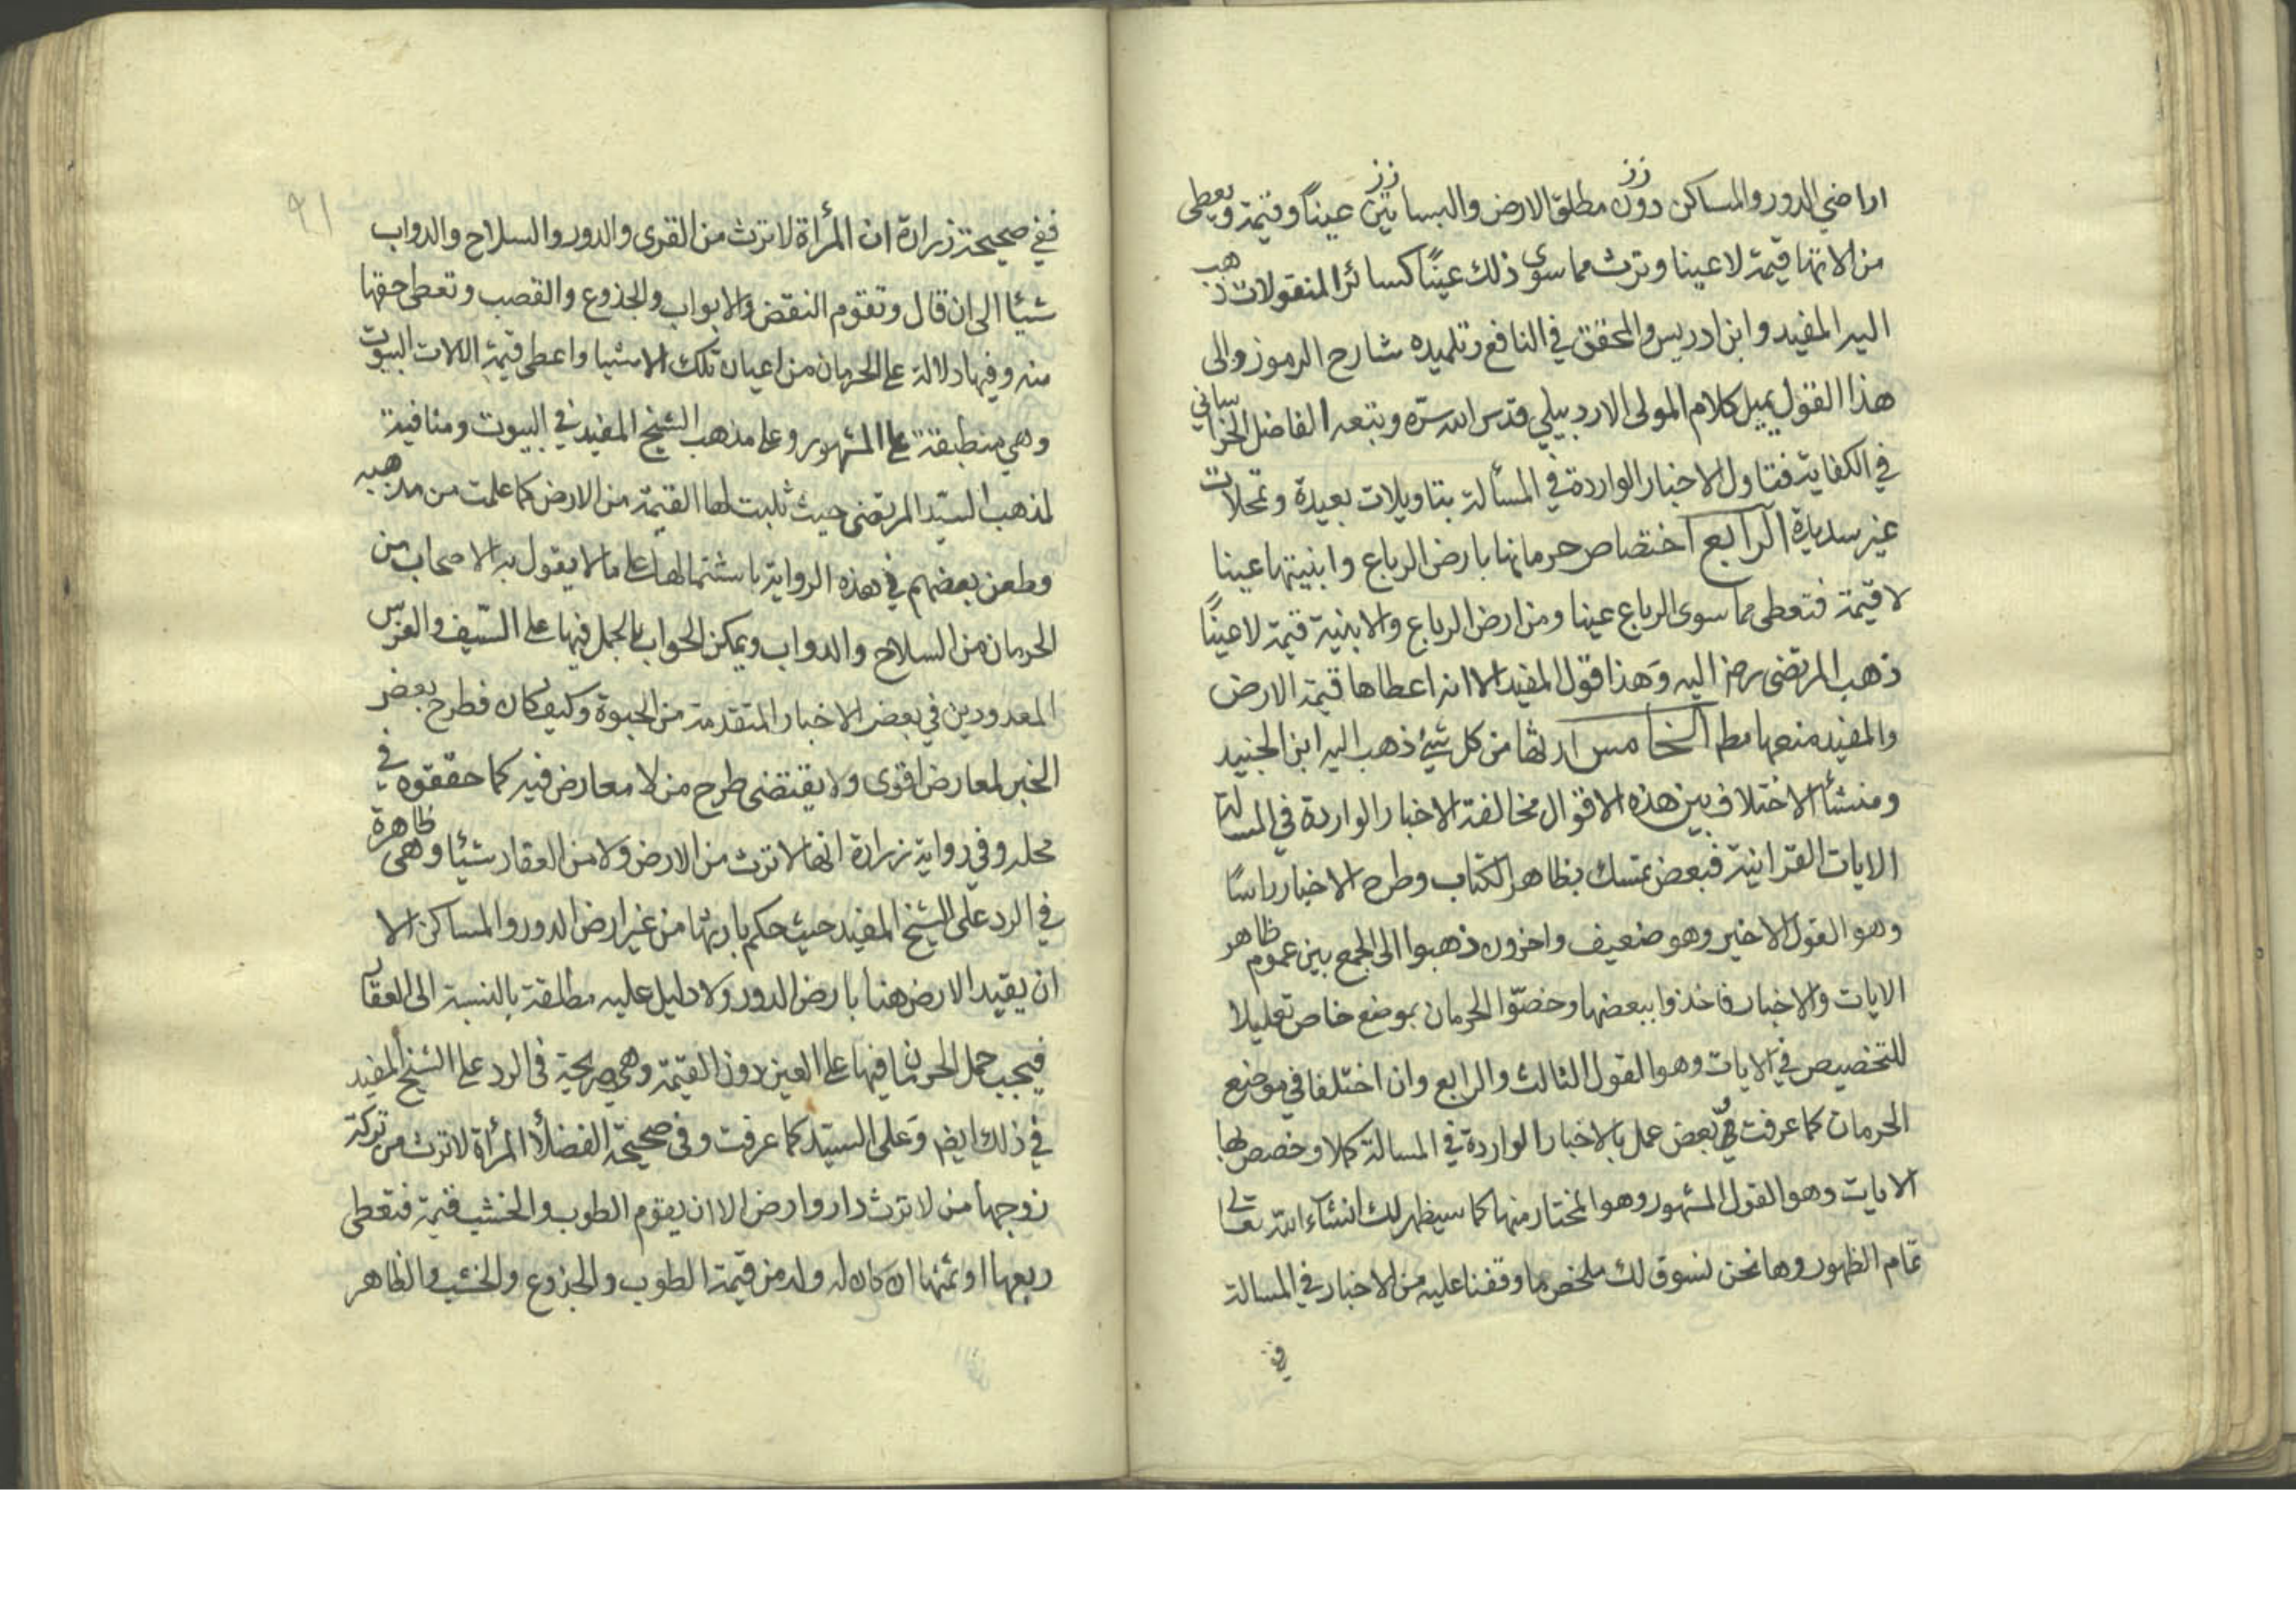 اراضي الدور والمساكن دون مطلق الارض والبساتين عيناً وقيمة ويعطى
من الاتها قيمة لا عينا وترث مما سوى ذلك عيناً كسائر المنقولات ذهب
اليه المفيد وابن ادريس والمحقق في النافع وتلميذه شارح الرموز والى
هذا القول يميل كلام المولى الاردبيلي قدس الله سرّه وتبعه الفاضل الخراساني
في الكفاية فتاول الاخبار الواردة في المسألة بتاويلات بعيدة وتمحلات
غير سديدة الرابع اختصاص حرمانها بارض الرباع وابنيتها عينا
لا قيمة فتعطى مما سوى الرباع عينا ومن ارض الرباع والابنية قيمة لا عيناً
ذهب المرتضى رضر اليه وهذا قول المفيد الا انه اعطاها قيمة الارض
والمفيد منعها مطم الخامس ارثها من كل شيء ذهب اليه ابن الجنيد
ومنشأ الاختلاف بين هذه الاقوال مخالفة الاخبار الواردة في المسالة
الايات القرانية فبعض تمسك بظاهر الكتاب وطرح الاخبار راسًا
وهو القول الاخير وهو ضعيف واخرون ذهبوا الى الجمع بين عموم ظاهر
الايات والاخبار فاخذوا ببعضها وخصّوا الحرمان بموضع خاص تقليلا
للتخصيص في الايات وهو القول الثالث والرابع وان اختلفا في موضع
الحرمان كما عرفت وبعض عمل بالاخبار الواردة في المسالة كملا وخصص بها
الايات وهو القول المشهور وهو المختار منها كما سيظهر لك انشآء الله تعالى
تمام الظهور وها نحن نسوق لك ملخص ما وقفنا عليه من الاخبار في المسالة
ففي
٩١
ففي صحيحة زرارة ان المرأة لا ترث من القرى والدور والسلاح والدواب
شيئا الى ان قال وتقوم النقض والابواب والجذوع والقصب وتعطى حقها
منه وفيها دلالة على الحرمان من اعيان تلك الاشيا واعطى قيمة الالات البيوت
وهي منطبقة على المشهور وعلى مذهب الشيخ المفيد في البيوت ومنافية
لمذهب السيّد المرتضى حيث ثلبت لها القيمة من الارض كما علمت من مذهبه
وطعن بعضهم في هذه الرواية باشتمالها على ما لا يقول به الاصحاب من
الحرمان من السلاح والدواب ويمكن الجواب بالحمل فيها على السّيف والفرس
المعدودين في بعض الاخبار المتقدمة من الحبوة وكيف كان فطرح بعض
الخبر لمعارض اقوى ولا يقتضى طرح من لا معارض فيه كما حققوه في
محله وفي رواية زرارة انها لا ترث من الارض ولا من العقار شيئا وهى ظاهرة
في الرد على الشيخ المفيد حيث حكم بارثها من غير ارض الدور والمساكن الا
ان يقيد الارض هنا بارض الدور ولا دليل عليه مطلقة بالنسبة الى العقار
فيجب حمل الحرمان فيها على العين دون القيمة وهي صريحة فى الرد على الشيخ المفيد
في ذلك ايضر وعلى السيّد كما عرفت وفى صحيحة الفضلأ المرأة لا ترث من تركة
زوجها من لا ترث دار وارض الا ان يقوم الطوب والخشب قيمة فتعطى
ربعها او ثمنها ان كان له ولد من قيمة الطوب والجزوع والخشب والظاهر